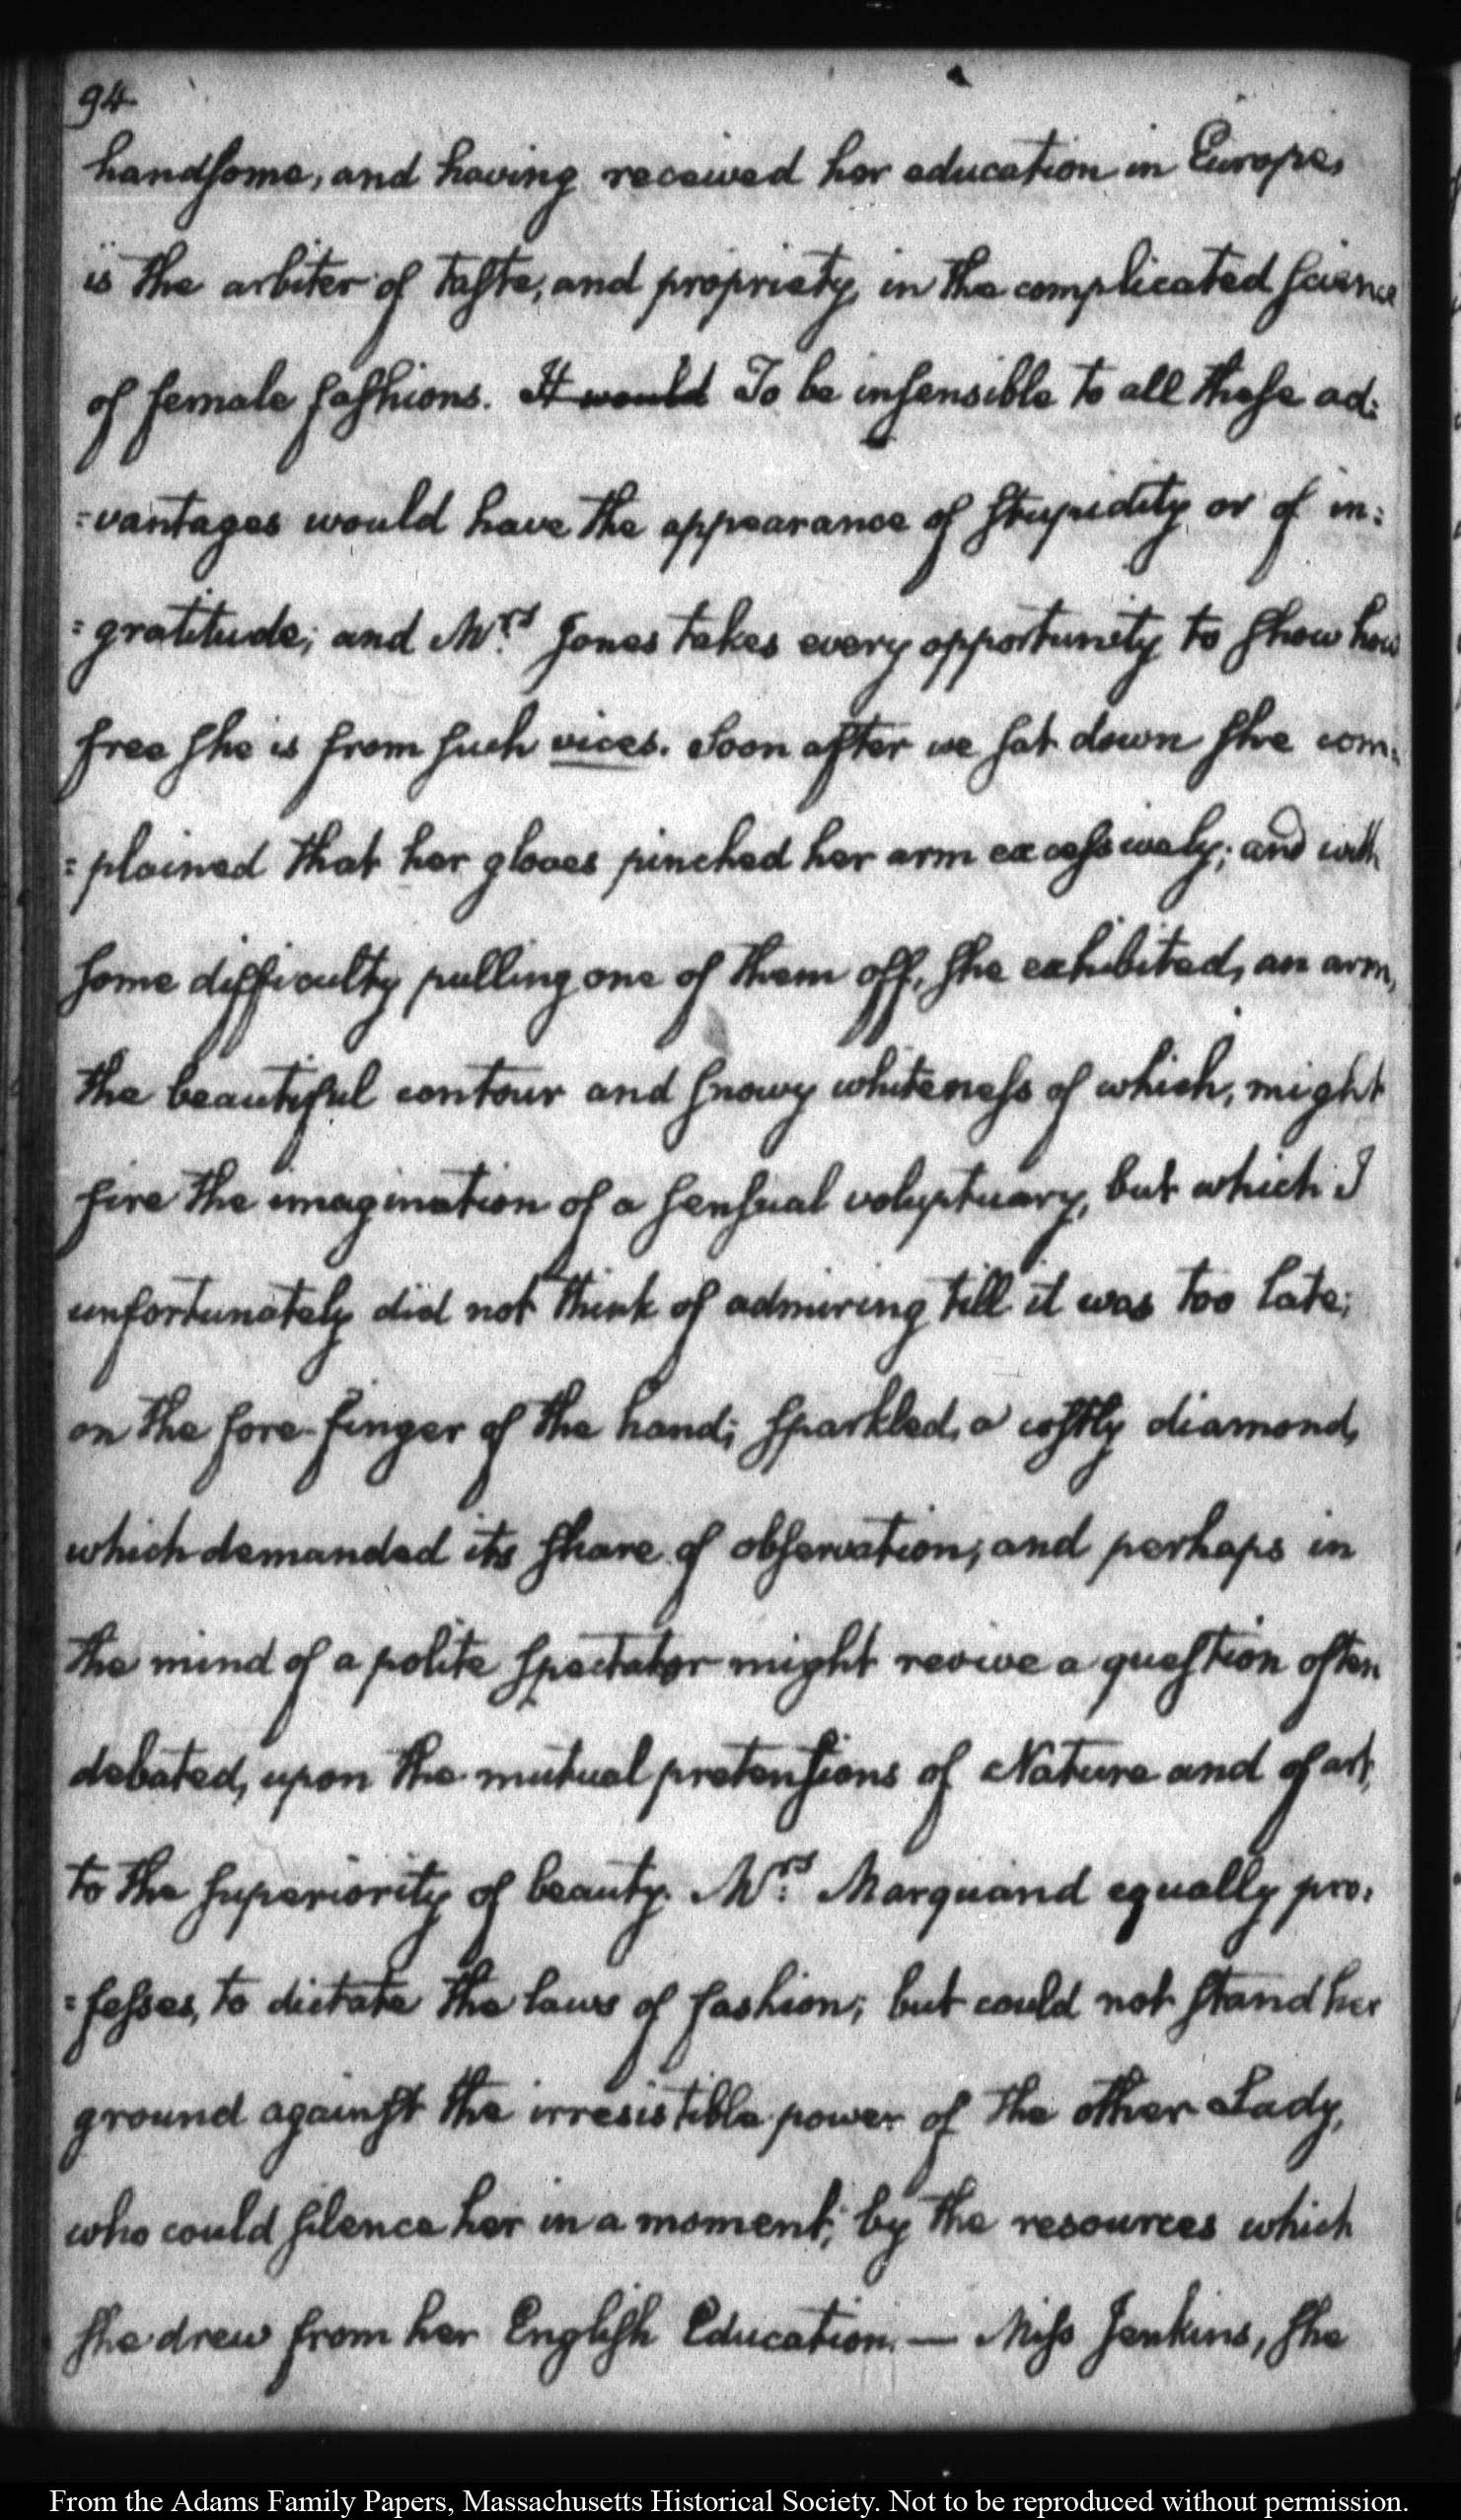 94
handsome, and having received her education in Europe,
is the arbiter of taste, and propriety, in the complicated science
of female fashions. It would To be insensible to all these ad:
=vantages would have the appearance of stupidity or of in:
=gratitude; and Mrs: Jones takes every opportunity to show how
free she is from such vices. Soon after we sat down she com:
=plained that her gloves pinched her arm excessively; and with
some difficulty pulling one of them off, she exhibited, an arm,
the beautiful contour and snowy whiteness of which, might
fire the imagination of a sensual voluptuary, but which I
unfortunately did not think of admiring till it was too late;
on the fore-finger of the hand; sparkled, a costly diamond,
which demanded its share of observation; and perhaps in
the mind of a polite spectator might revive a question often
debated, upon the mutual pretensions of Nature and of art,
to the superiority of beauty. Mrs: Marquand equally pro:
=fesses, to dictate the laws of fashion; but could not stand her
ground against the irresistible power of the other Lady,
who could silence her in a moment; by the resources which
she drew from her English Education. — Miss Jenkins, she
From the Adams Family Papers, Massachusetts Historical Society. Not to be reproduced without permission.